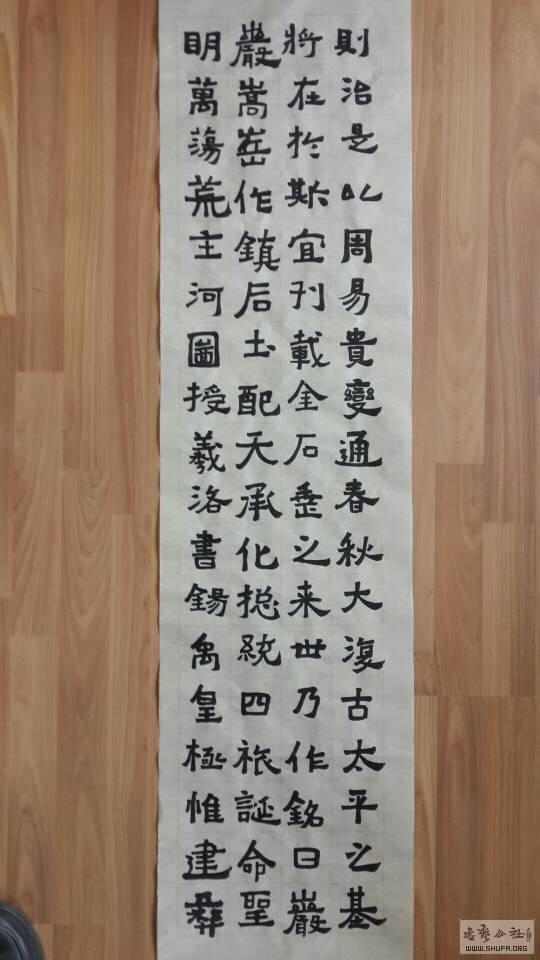 則治是以周易貴變通春秋大復古太平之基
將在於斯宜刊載金石垂之来世乃作銘曰巖
巖嵩岳作鎮后土配天承化摠統四祇誕命聖
明萬蕩荒主河圖授羲洛書錫禹皇極惟建彝
WWW.SHUFA.ORG